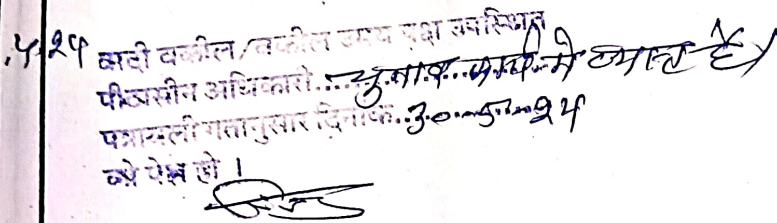 .4.24 वादी वकील/वकील उभय पक्ष उपस्थित
पीठासीन अधिकारी....चुनाव...कार्य...मे व्यस्त है।
पत्रावली गतानुसार दिनांक..30...5...24
को पेश हो ।